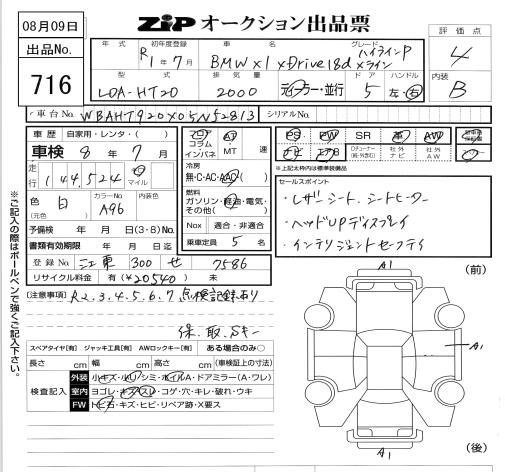 08月09日
ZIP オークション出品票
出品No.
716
年式 初年度登録 車名 グレード
R1年7月 BMW X1 xDrive18d ハイラインP
xライン
型式 排気量 ドア ハンドル
LDA-HT20 2000 ディーラー・並行 5 左・右
評価点
4
内装
B
車台No. WBAHT920X05N52813 シリアルNo.
車歴 自家用・レンタ・( )
車検 8年7月
走行 144,524 km マイル
色 白 (元色) カラーNo. A96
予備検 年 月 日(3・8)No.
書類有効期限 年 月 日迄
登録No. 江東 300 せ 7586
リサイクル料金 有(¥20540) 未
フロア コラム インパネ AT MT 速
冷房
無・C・AC・AAC
燃料
ガソリン・軽油・電気・その他( )
Nox 適合・非適合
乗車定員 5 名
PS PW SR 革 AW
ナビ エアB Dチューナー(純・外含む) 社外ナビ 社外AW
※上記太枠内は標準装備品
セールスポイント
・レザーシート、シートヒーター
・ヘッドUPディスプレイ
・インテリジェントセーフティ
[注意事項] R2.3.4.5.6.7点検記録あり
保.取.Sキー
スペアタイヤ[有] ジャッキ工具[有] AWロックキー[有] ある場合のみ○
長さ cm 幅 cm 高さ cm (車検証上の寸法)
検査記入
外装 小キズ・小ハシミ・ホイルA・ドアミラー(A・ワレ)
室内 ヨゴレ・キズ・スレ・コゲ・穴・キレ・破れ・ウキ
FW トビ石・キズ・ヒビ・リペア跡・X要ス
※ご記入の際はボールペンで強くご記入下さい。
A1 (前)
A1
A1 (後)